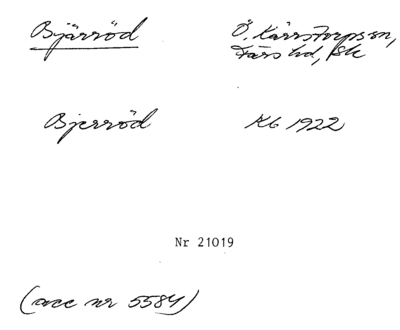 Bjärröd
Ö. Kärrstorps sn,
Färs hd, Sk
Bjerröd
Kb 1922
Nr 21019
(acc nr 5584)